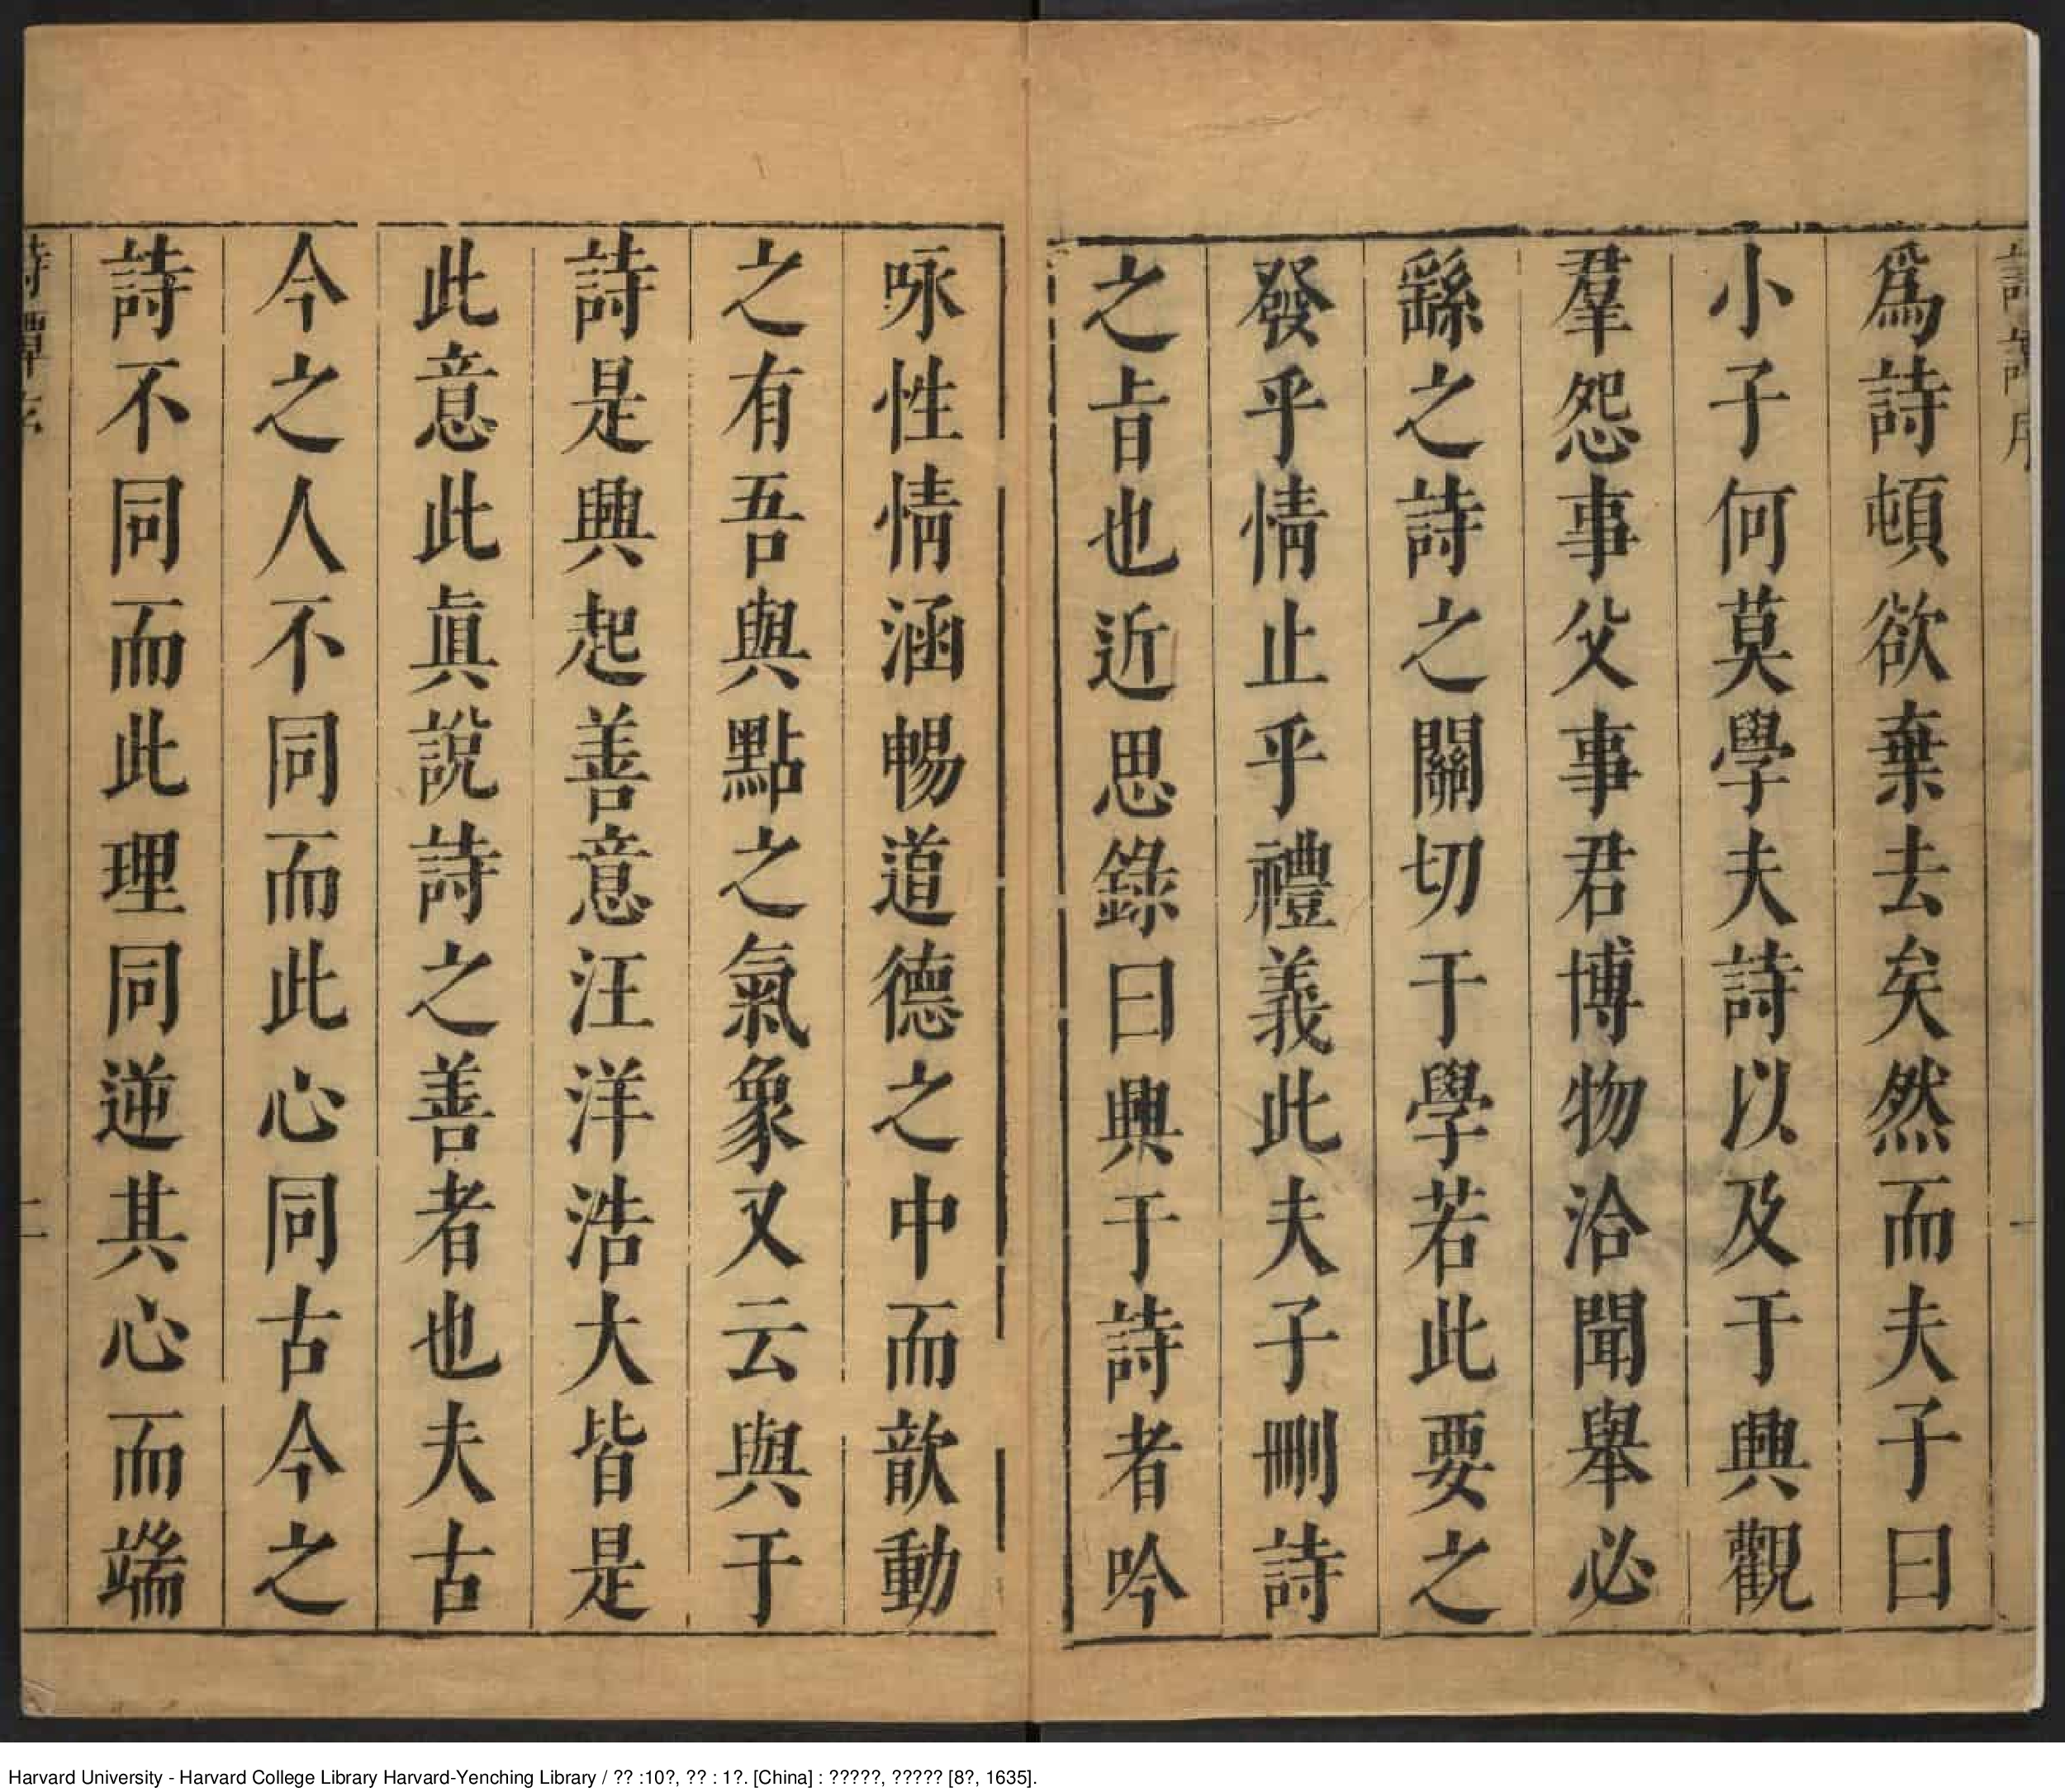 爲詩頓欲棄去矣然而夫子曰
小子何莫學夫詩以及于興觀
羣怨事父事君博物洽聞舉必
繇之詩之關切于學若此要之
發乎情止乎禮義此夫子刪詩
之㫖也近思錄曰興于詩者吟
咏性情涵暢道德之中而歆動
之有吾與點之氣象又云興于
詩是興起善意汪洋浩大皆是
此意此眞說詩之善者也夫古
今之人不同而此心同古今之
詩不同而此理同逆其心而端
二
Harvard University - Harvard College Library Harvard-Yenching Library / ?? :10?, ?? : 1?. [China] : ?????, ????? [8?, 1635].